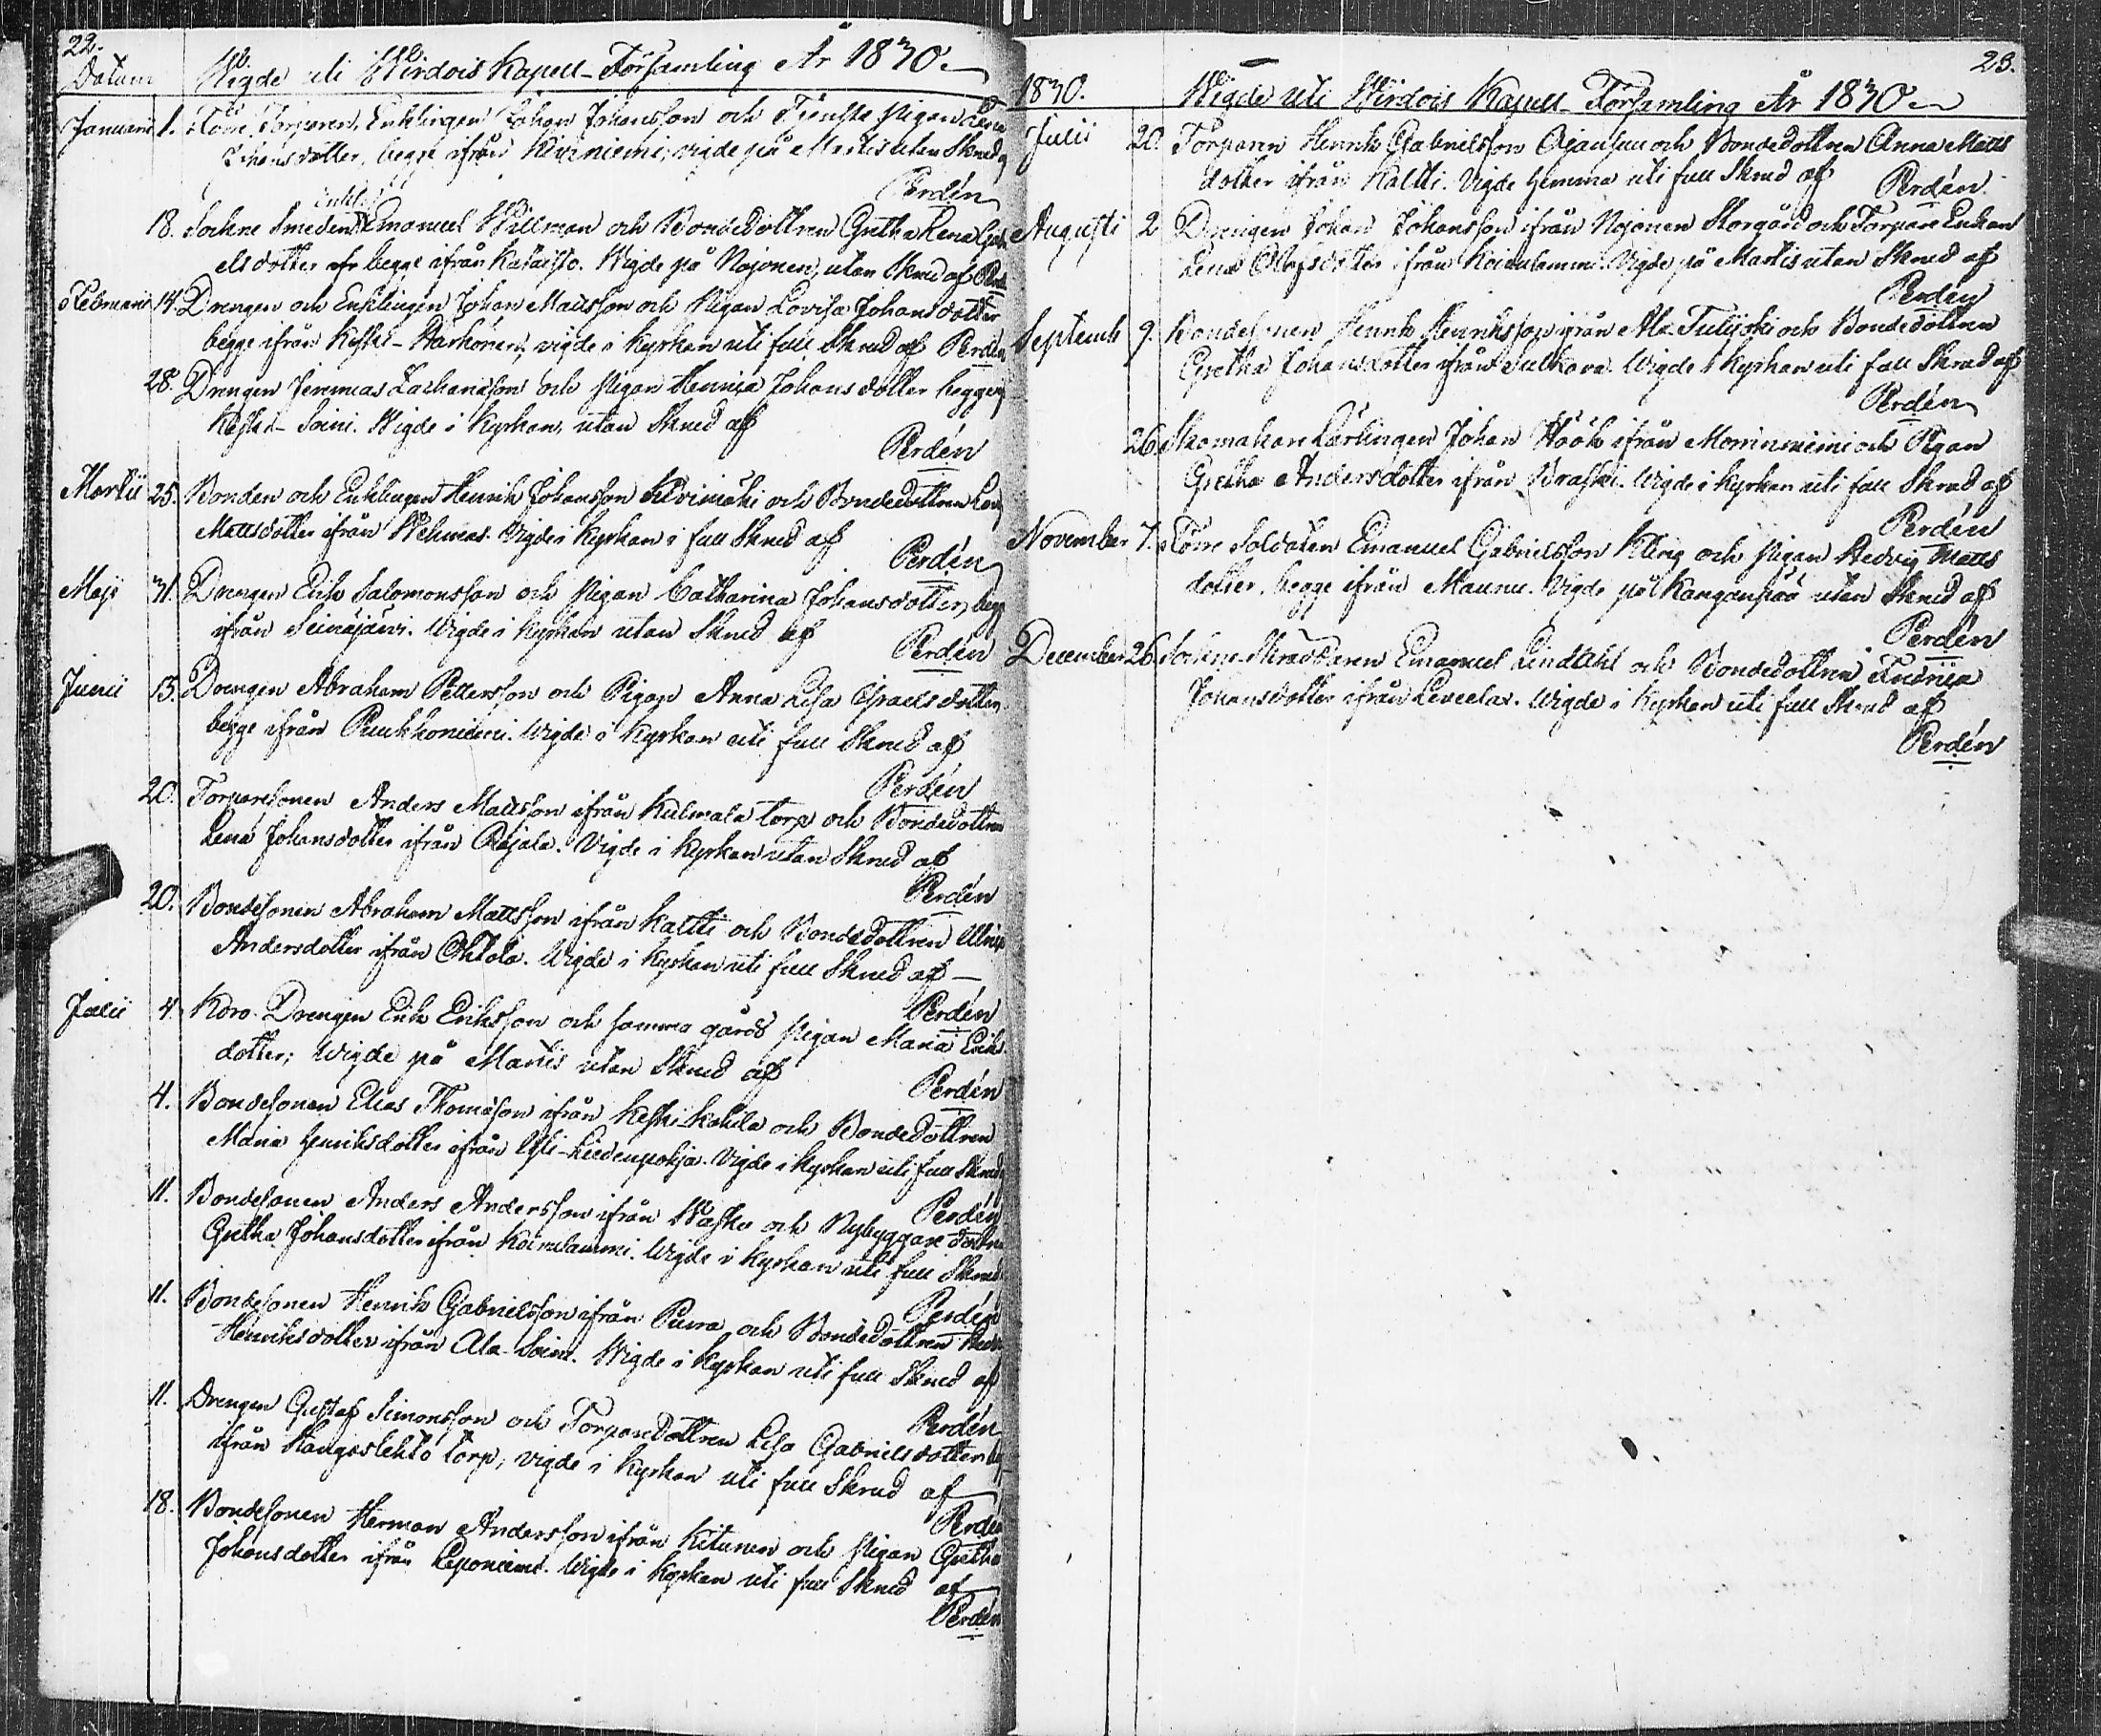 22.
Datum Wigde uti Wirdois Kapell-Församling År 1830.
Januarii 1. Förre Torparen, Enklingen Johan Johansson och Tjenste Pigan Lena
Johansdotter, begge ifrån Kirniemi; vigde på Martis utan Skrud af
Perdén
Enkl:
18. Sockne Smeden Emanuel Willman och Bondedottren Gretha Lena Gabri
elsdotter begge ifrån Kataisto. Wigde på Nojonen, utan Skrud af Perdé
Februarii 14. Drengen och Enklingen Johan Mattsson och Pigan Lovisa Johansdotter
begge ifrån Keski-Harhonen, vigde i Kyrkan uti full Skrud af Perdén
28. Drengen Jeremias Zachariasson och Pigan Henrica Johansdotter begge
Keski-Soini. Wigde i Kyrkan, utan Skrud af
Perdén
Martii 25. Bonden och Enklingen Henrik Johansson Kivimäki och Bondedottren
Mattsdotter ifrån Wehmas. Vigde i Kyrkan i full Skrud af
Perdén
Maji 31. Drengen Erik Salomonsson och Pigan Catharina Johansdotter, begge
ifrån Seinäjärvi. Wigde i Kyrkan utan Skrud af
Perdén
Junii 13. Drengen Abraham Pettersson och Pigan Anna Lisa Israelsdotter
begge ifrån Puukkoniemi. Wigde i Kyrkan uti full Skrud af
Perdén
20. Torparesonen Anders Mattsson ifrån Kulmala torp och Bondedottren
Lena Johansdotter ifrån Rajala. Vigde i Kyrkan utan Skrud af
Perdén
20. Bondesonen Abraham Mattsson ifrån Kaltti och Bondedottren Ulrica
Andersdotter ifrån Ohtola. Wigde i Kyrkan uti full Skrud af
Perdén
Julii 4. Koro Drengen Erik Eriksson och samma gårds Pigan Maria Eriks
dotter; Wigde på Martis utan Skrud af
Perdén
4. Bondesonen Elias Thomasson ifrån Keski-Kokila och Bondedottren
Maria Henriksdotter ifrån Yli-Liedenpohja. Vigde i Kyrkan uti full Skrud
Perdén
11. Bondesonen Anders Andersson ifrån Wasko och Nybyggare dottren
Gretha Johansdotter ifrån Koirulammi. Wigde i Kyrkan uti full Skrud
Perdén
11. Bondesonen Henrik Gabrielsson ifrån Purra och Bondedottren
Henriksdotter ifrån Ala-Soini. Wigde i Kyrkan uti full Skrud af
Perdén
11. Drengen Gustaf Simonsson och Torparedottren Lisa Gabrielsdotter
ifrån Kangaslehto torp, vigde i Kyrkan uti full Skrud af
Perdén
18. Bondesonen Herman Andersson ifrån Kitunen och Pigan Gretha
Johansdotter ifrån Leponiemi. Wigde i Kyrkan uti full Skrud af
Perdén
23.
1830. Wigde uti Wirdois Kapell-Församling År 1830
Julii 20. Torparen Henrik Gabrielsson Ajansuu och Bondedottren Anna Matts
dotter ifrån Kaltti. Vigde hemma uti full Skrud af Perdén
Augusti 2. Drengen Johan Johansson ifrån Nojonen Storgård och Torpare Enkan
Lena Olofsdotter ifrån Koirulammi. Vigde på Martis utan Skrud af
Perdén
Septemb 9. Bondesonen Henrik Henriksson ifrån Ala-Tulijoki och Bondedottren
Gretha Johansdotter ifrån Sulkava. Wigde i Kyrkan uti full Skrud af
Perdén
26. Skomakare Lärlingen Johan Höök ifrån Morrinniemi och Pigan
Gretha Andersdotter ifrån Braski. Wigde i Kyrkan uti full Skrud af
Perdén
November 7. Förre Soldaten Emanuel Gabrielsson Kling och Pigan Hedvig Matts
dotter, begge ifrån Maunu. Vigde på Kangaspää utan Skrud af
Perdén
December 26. Sockne-Skräddaren Emanuel Lindstehl och Bondedottren Fredrica
Johansdotter ifrån Leveelax. Wigde i Kyrkan uti full Skrud af
Perdén